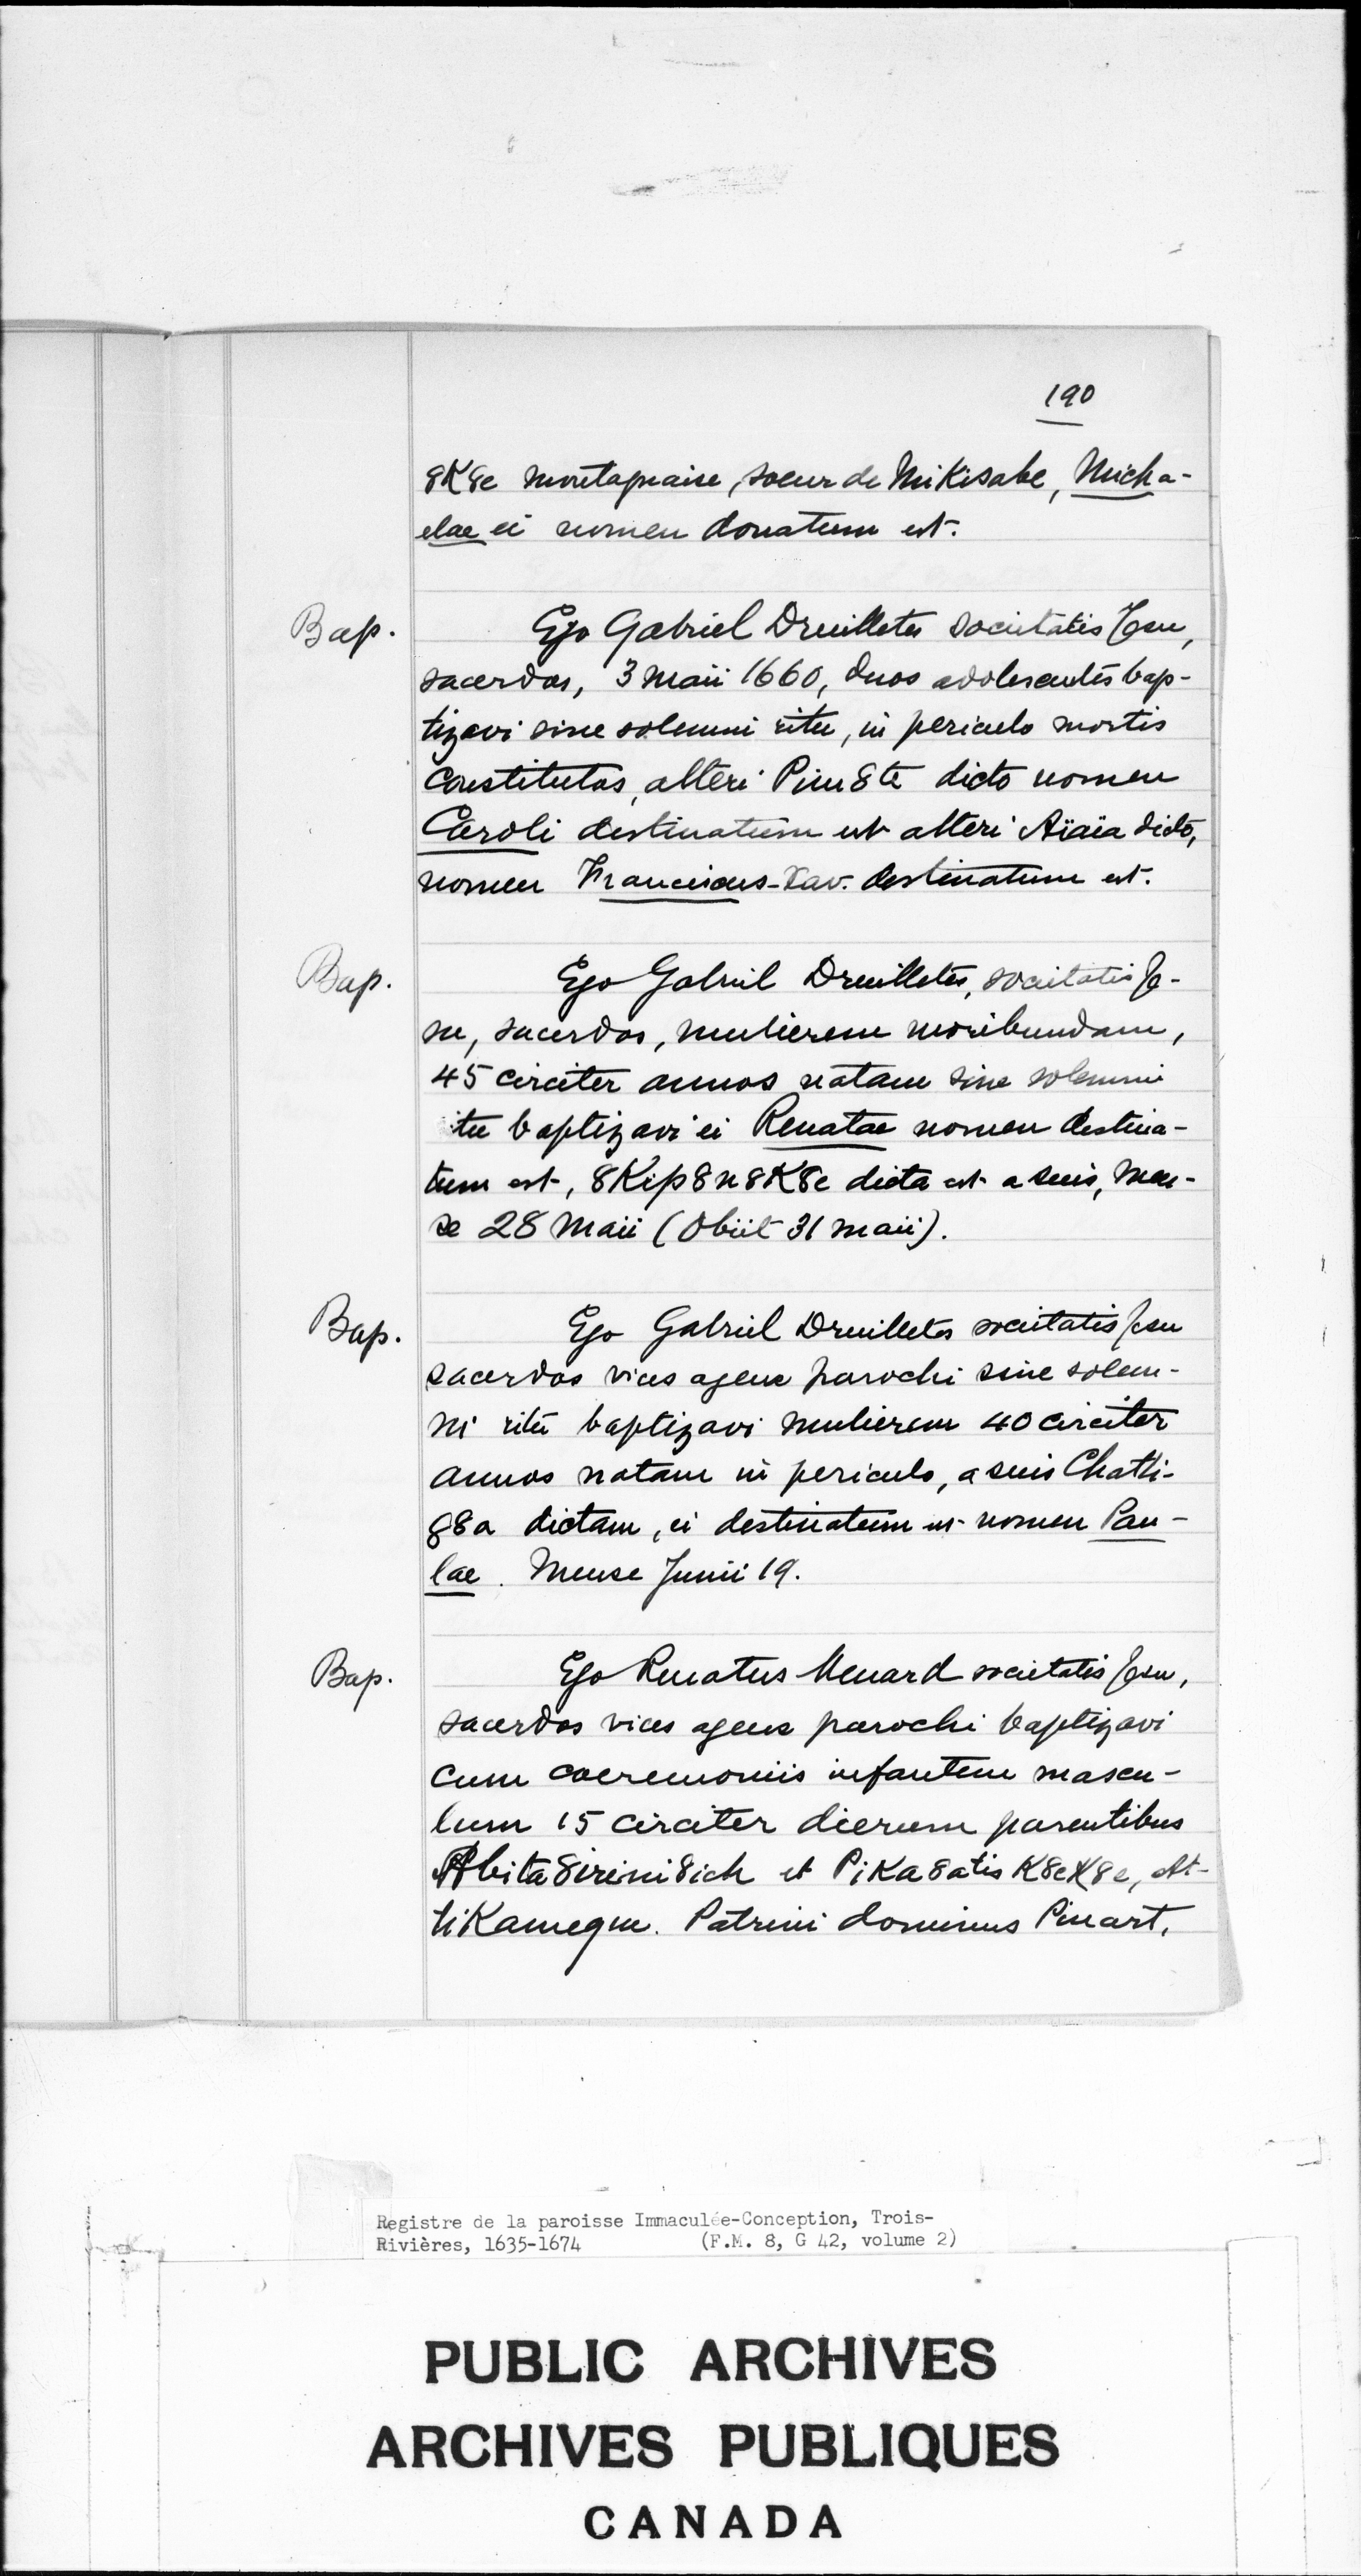 190
8K8e montagnaise, soeur de MiKisabe, Micha-
elae ei nomen donatum est.
Bap.
Ego Gabriel Druilletes societatis Jesu,
sacerdos, 3 maii 1660, duos adolescentes bap-
tizavi sine solemni ritu, in periculo mortis
constitutos, alteri Pim8te dicto nomen
Caroli destinatum est alteri Aïaïa dicto,
nomen Franciscus-Xav. destinatum est.
Bap.
Ego Gabriel Druilletes, societatis Je-
su, sacerdos, mulierem moribundam,
45 circiter annos natam sine solemni
itu baptizavi ei Renatae nomen destina-
tum est, 8Kip8n8K8e dicta est a suis, men-
se 28 Maii (Obiit 31 maii).
Bap.
Ego Gabriel Druilletes societatis Jesu
sacerdos vices agens parochi sine solem-
ni ritu baptizavi mulierem 40 circiter
annos natam in periculo, a suis Chatti-
g8a dictam, ei destinatum est nomen Pau-
lae. Mense Junii 19.
Bap.
Ego Renatus Menard societatis Jesu,
sacerdos vices agens parochi baptizavi
cum caeremoniis infantem mascu-
lum 15 circiter dierum parentibus
Abita8irini8ich et PiKa8atisK8eK8e, At-
tiKamegue. Patrini dominus Pinart,
Registre de la paroisse Immaculée-Conception, Trois-
Rivières, 1635-1674 (F.M. 8, G 42, volume 2)
PUBLIC ARCHIVES
ARCHIVES PUBLIQUES
CANADA